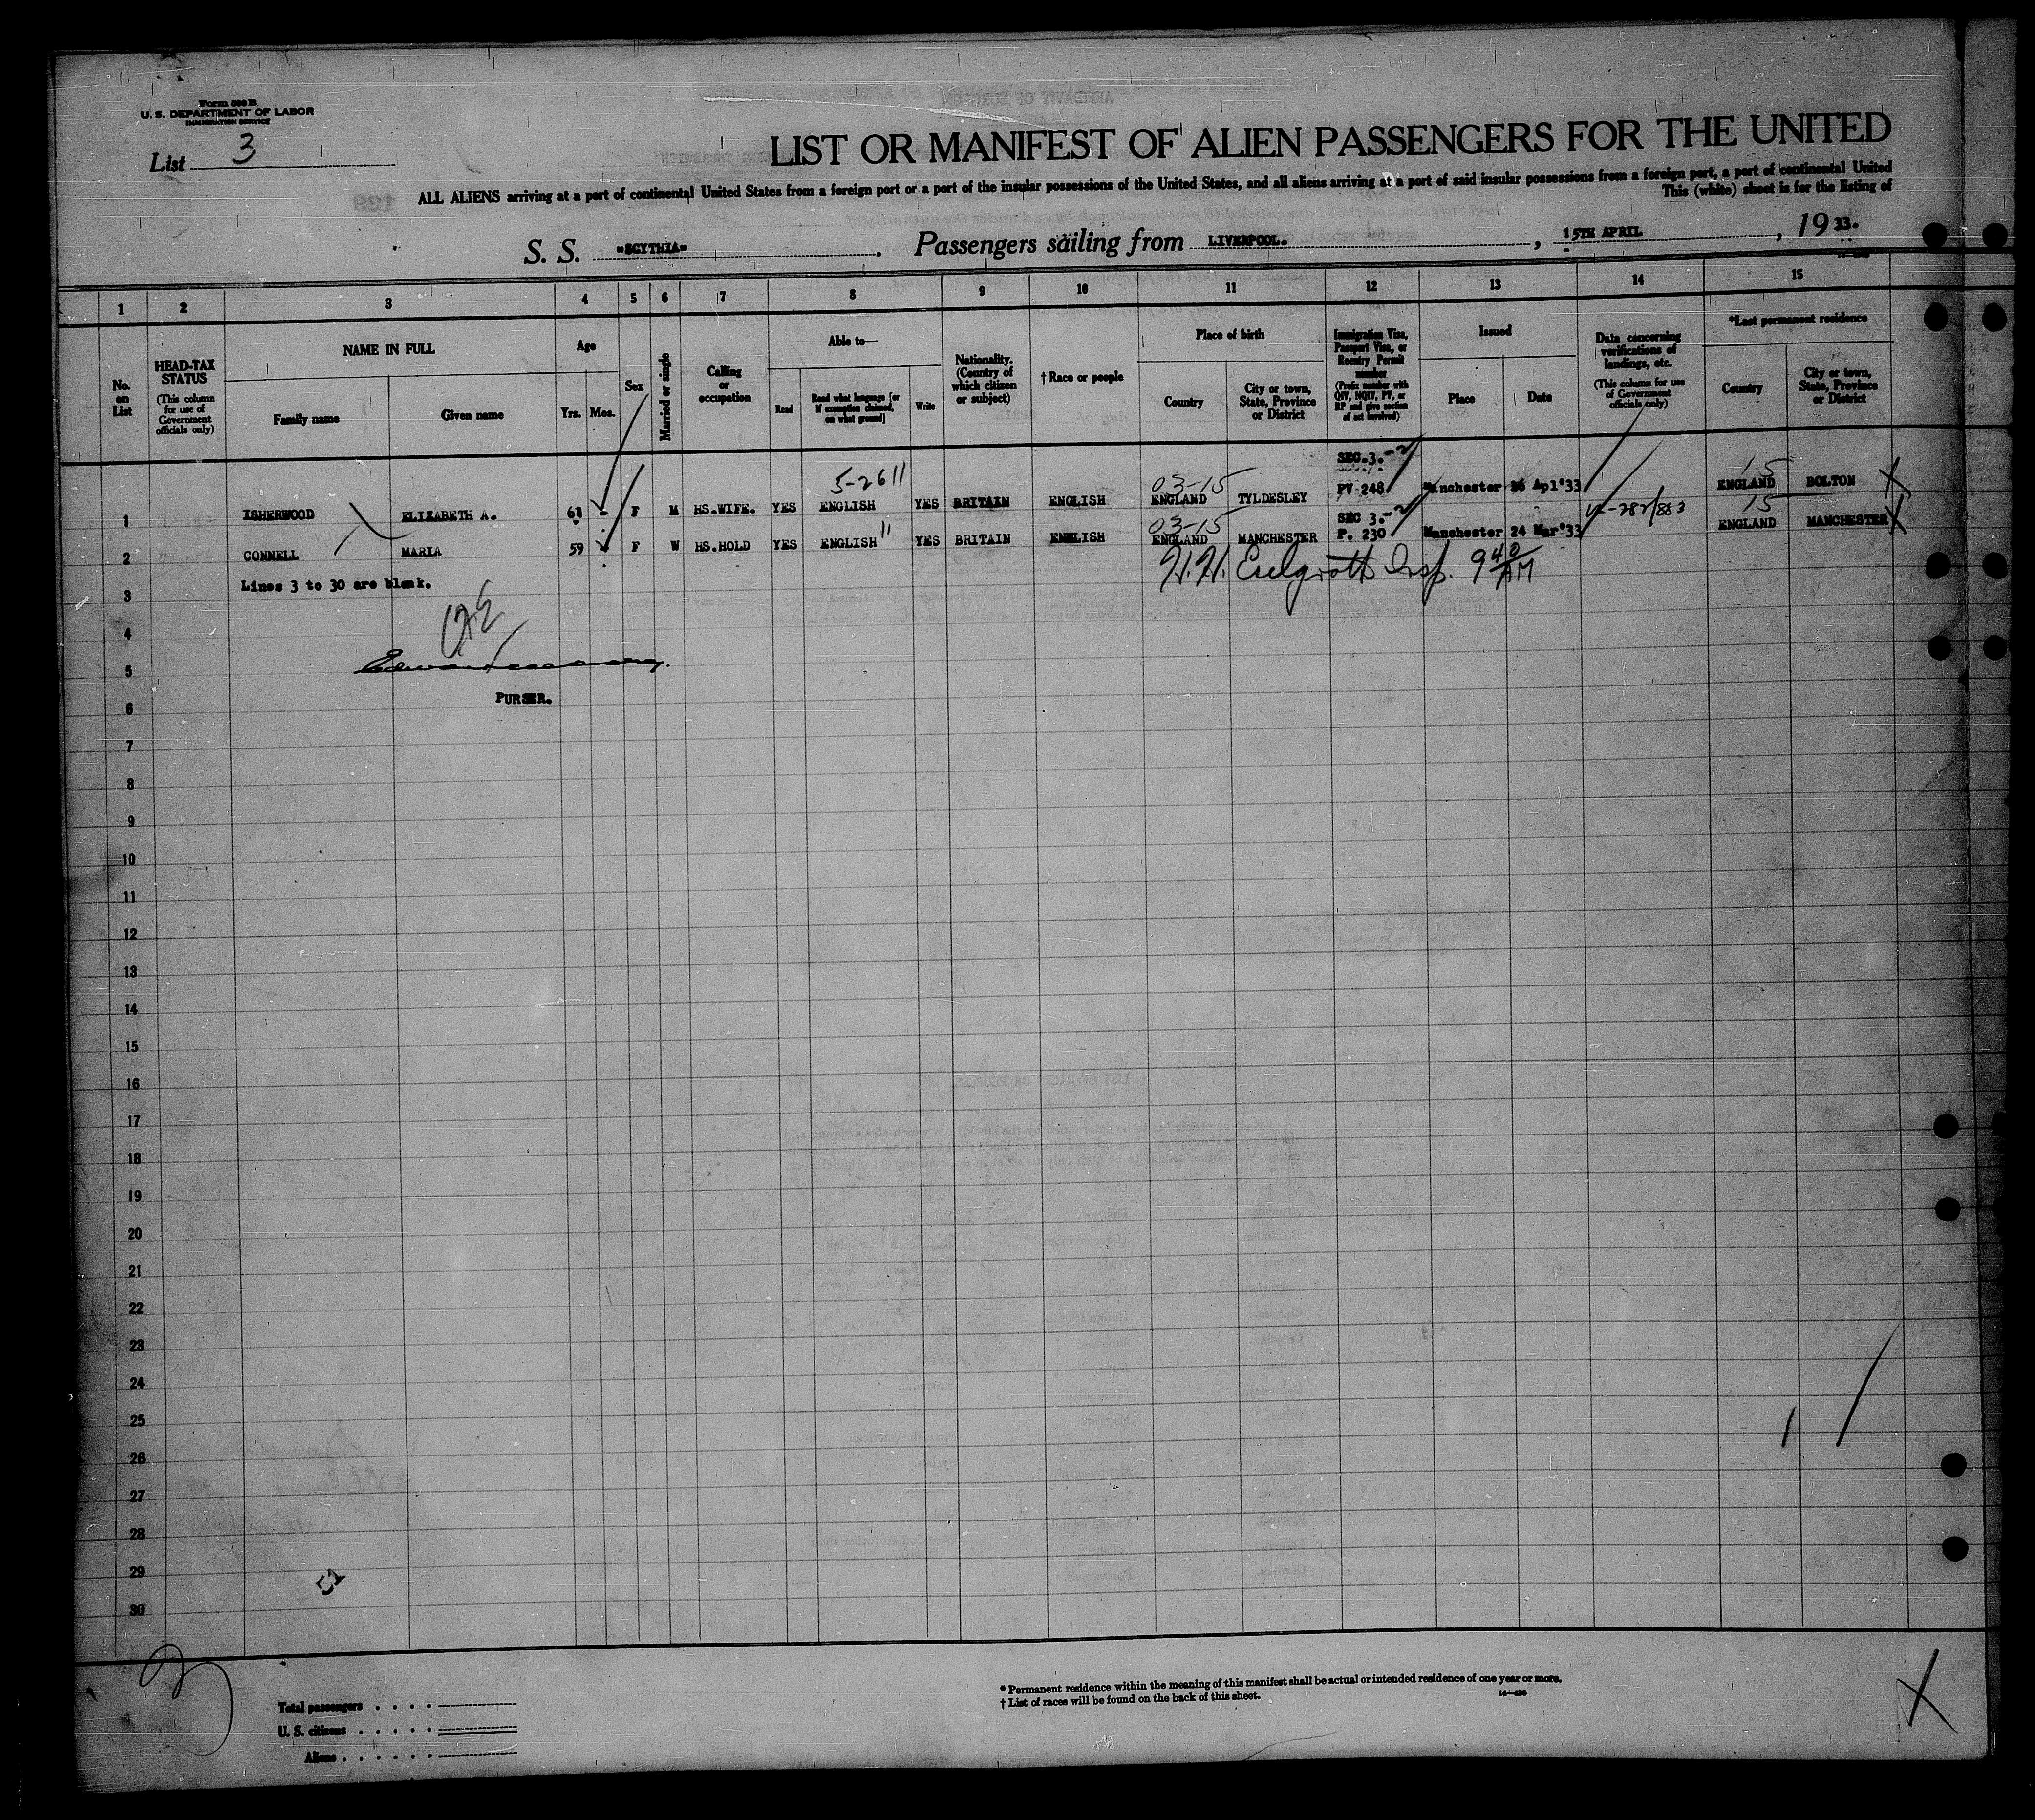 Form 500 B
U. S. DEPARTMENT OF LABOR
IMMIGRATION SERVICE
List 3
LIST OR MANIFEST OF ALIEN PASSENGERS FOR THE UNITED
ALL ALIENS arriving at a port of continental United States from a foreign port or a port of the insular possessions of the United States, and all aliens arriving at a port of said insular possessions from a foreign port, a port of continental United
This (white) sheet is for the listing of
S. S. "SCYTHIA" . Passengers sailing from LIVERPOOL. , 15TH APRIL , 19 33.
1 2 3 4 5 6 7 8 9 10 11 12 13 14 15
No. on List
HEAD-TAX STATUS
(This column for use of Government officials only)
NAME IN FULL
Family name Given name
Age
Yrs. Mos.
Sex
Married or single
Calling or occupation
Able to—
Read Read what language [or if exemption claimed, on what ground] Write
Nationality. (Country of which citizen or subject)
† Race or people
Place of birth
Country City or town, State, Province or District
Immigration Visa, Passport Visa, or Reentry Permit number
(Prefix number with QIV, NQIV, PV, or RP and give section of act involved)
Issued
Place Date
Data concerning verifications of landings, etc.
(This column for use of Government officials only)
*Last permanent residence
Country City or town, State, Province or District
5-26 11 03-15 SEC.3.-2 15
1 ISHERWOOD ELIZABETH A. 61 - F M HS.WIFE. YES ENGLISH YES BRITAIN ENGLISH ENGLAND TYLDESLEY PV 248 Manchester Apl'33 ENGLAND BOLTON X
11 03-15 SEC 3.-2 15
2 CONNELL MARIA 59 F W HS.HOLD YES ENGLISH YES BRITAIN ENGLISH ENGLAND MANCHESTER P. 230 Manchester 24 Mar'33 ENGLAND MANCHESTER X
Lines 3 to 30 are blank.
H.H. Insp. 9 40 AM
3
4
5
PURSER.
6
7
8
9
10
11
12
13
14
15
16
17
18
19
20
21
22
23
24
25
26
27
28
29
30
Total passengers . . . .
U. S. citizens . . . . .
Aliens . . . . . .
* Permanent residence within the meaning of this manifest shall be actual or intended residence of one year or more.
† List of races will be found on the back of this sheet.
X